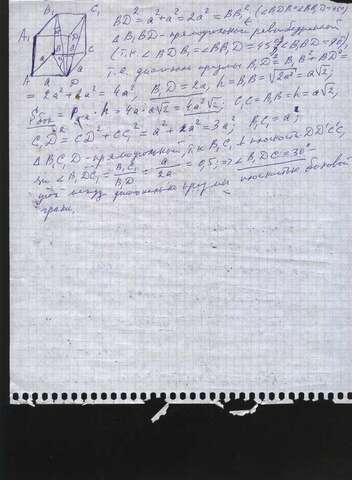 B₁ C₁
A₁
B C
A a D
BD² = a² + a² = 2a² = BB₁² (∠BDB₁=∠BB₁D=45°)
ΔB₁BD - прямоугольный равнобедренный
(т.к. ∠BDB₁=∠BB₁D=45°, ∠B₁BD=90°),
т.е. диагональ призмы B₁D² = B₁B² + BD² =
= 2a² + 2a² = 4a², B₁D = 2a, h = B₁B = √2a² = a√2,
Sбок = P · h = 4a · a√2 = 4a²√2, C₁C = B₁B = h = a√2,
C₁D² = CD² + CC₁² = a² + 2a² = 3a², B₁C₁² = a²,
ΔB₁C₁D - прямоугольный, т.к. B₁C₁ ⊥ плоскости DD₁C₁C,
∠B₁DC₁ = B₁C₁/B₁D = a/2a = 0,5, => ∠B₁DC = 30°
угол между диагональю призмы и плоскостью боковой
грани.